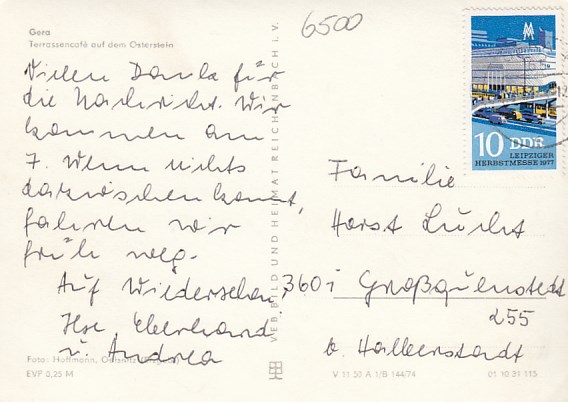 Gera
Terrassencafé auf dem Osterstein
6500
Vielen Dank für
die Nachricht. Wir
kommen am
7. Wenn nichts
dazwischen kommt,
fahren wir
früh weg.
Auf Wiedersehen,
Ilse, Eberhard
u. Andrea
Foto: Hoffmann,
EVP 0,25 M
VEB BILD UND HEIMAT REICHENBACH i. V.
10 DDR
LEIPZIGER
HERBSTMESSE 1977
Familie
Horst Lucht
3601 Großquenstedt
255
b. Halberstadt
V 11 50 A 1/B 144/74
01 10 31 115